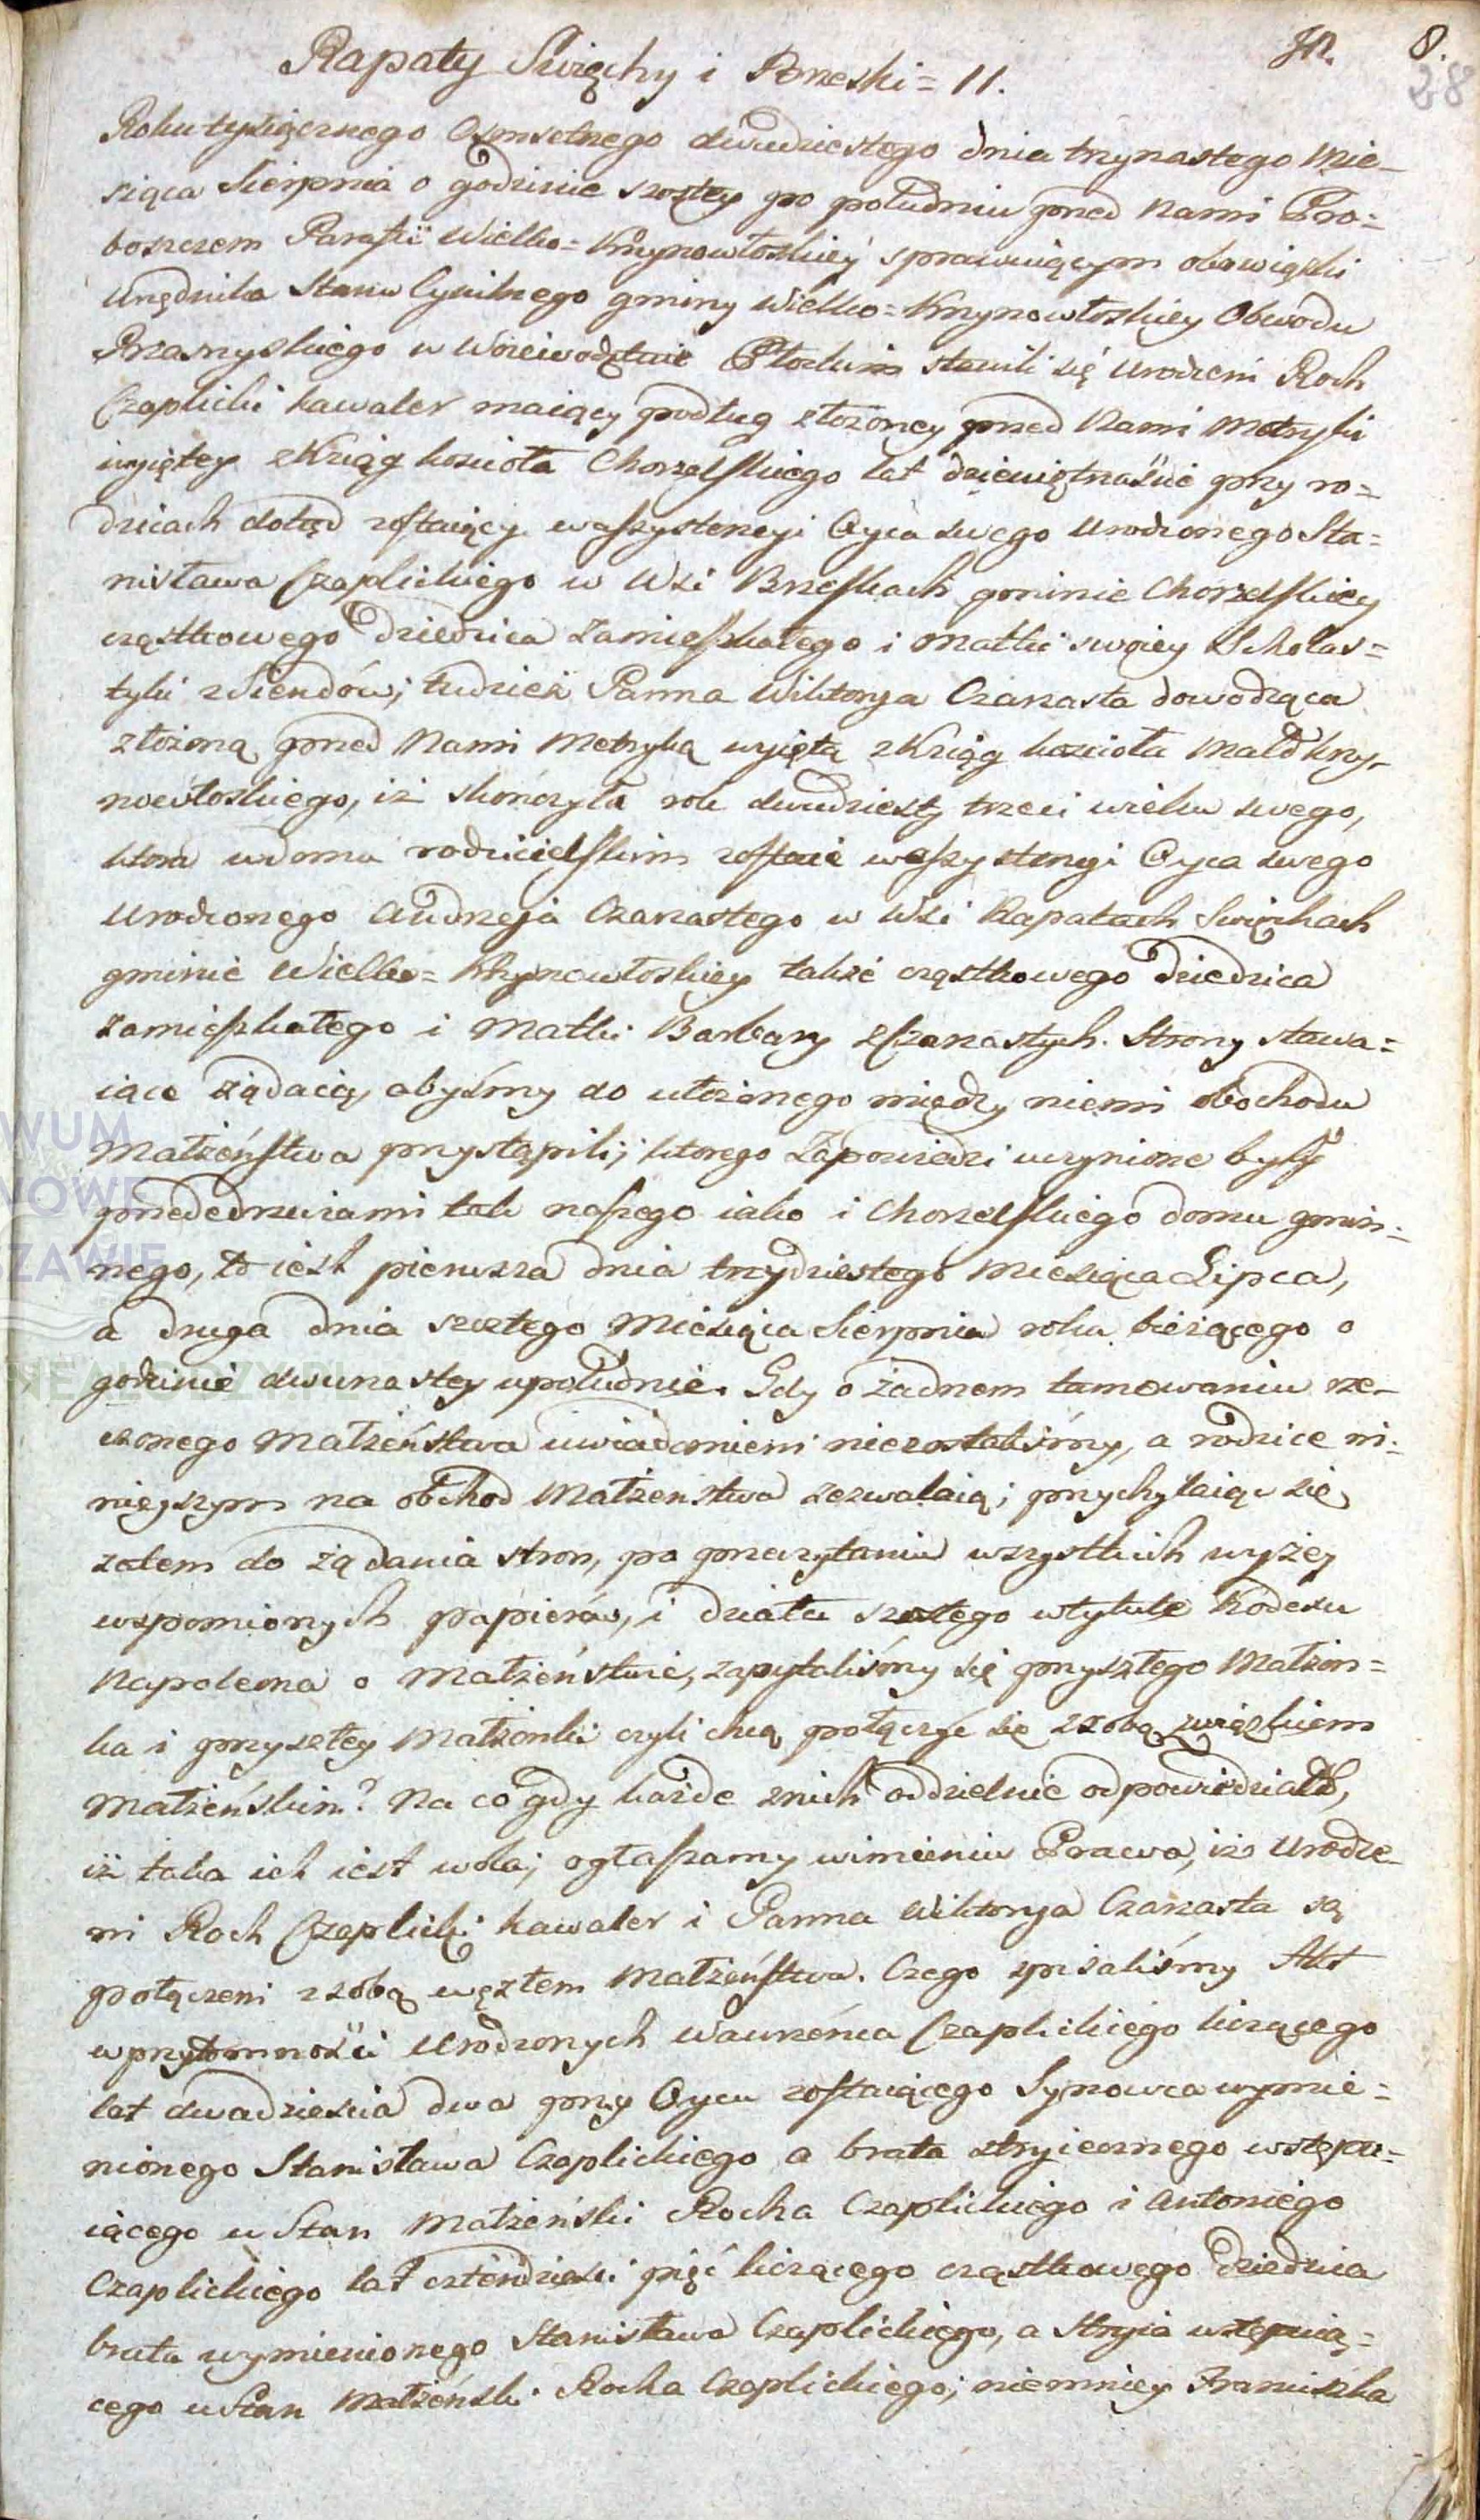 Rapaty Swięchy i Brzeski = 11.
8.
28
Roku tysiącznego Osmsetnego dwudziestego dnia trzynastego Mie-
siąca Sierpnia o godzinie szostey po południu przed Nami Pro=
boszczem Parafii Wielko=Krzynowłoskiey sprawuiącym obowiązki
Urzędnika Stanu Cywilnego gminy Wielko=Krzynowłoskiey Obwodu
Przasnyskiego w Woiewodztwie Płockim stawili się Urodzeni Roch
Czaplicki kawaler maiący podług złożoney przed Nami Metryki
wyiętey z Xiąg kościoła Chorzelskiego lat dziewiętnaście przy ro=
dzicach dotąd zostaiący w assystencyi Oyca swego Urodzonego Sta=
nisława Czaplickiego w Wsi Brzeskach gminie Chorzelskiey
cząstkowego Dziedzica zamieszkałego i Matki swoiey Scholas=
tyki z Siendów; tudzież Panna Wiktorya Czarzasta dowodząca
złożoną przed Nami Metryką wyiętą z Xiąg kościoła Małokrzy-
nowłoskiego, iż skończyła rok dwudziesty trzeci wieku swego,
ktora w domu rodzicielskim zostaie w assystencyi Oyca swego
Urodzonego Andrzeja Czarzastego w Wsi Rapatach Swięchach
gminie Wielko=Krzynowłoskiey także cząstkowego Dziedzica
zamieszkałego i Matki Barbary z Czarzastych. Strony stawa=
iące żądaią, abyśmy do ułożonego między niemi obchodu
Małżeństwa przystąpili; ktorego Zapowiedzi uczynione były
przededrzwiami tak naszego iako i Chorzelskiego domu gmin=
nego, to iest pierwsza dnia trzydziestego Miesiąca Lipca,
a druga dnia szostego Miesiąca Sierpnia roku bieżącego o
godzinie dwunastey w południe. Gdy o żadnem tamowaniu rze-
czonego Małżeństwa uwiadomieni niezostaliśmy, a rodzice ni=
nieyszym na obchod Małżenstwa zezwalaią; przychylaiąc się
zatem do żądania stron, po przeczytaniu wszystkich wyżey
wspomionych papierów, i działu szostego w tytule Kodexu
Napoleona o Małżeństwie, zapytaliśmy się przyszłego Małżon=
ka i przyszłey Małżonki czyli chcą połączyć się z sobą związkiem
Małżeńskim? Na co gdy każde z nich oddzielnie odpowiedziało,
iż taka ich iest wola; ogłaszamy w imieniu Prawa, iż Urodze-
ni Roch Czaplicki kawaler i Panna Wiktorya Czarzasta są
połączeni z sobą węzłem Małżeństwa. Czego spisaliśmy Akt
w przytomności Urodzonych Wawrzeńca Czaplickiego liczącego
lat dwadzieścia dwa przy Oycu zostaiącego Synowca wymie=
nionego Stanisława Czaplickiego a brata stryiecznego wstępu=
iącego w Stan Małżeński Rocha Czaplickiego i Antoniego
Czaplickiego lat czterdzieści pięć liczącego cząstkowego Dziedzica
brata wymienionego Stanisława Czaplickiego, a Stryia wstępuią=
cego w Stan Małżeński Rocha Czaplickiego; niemniey Franciszka